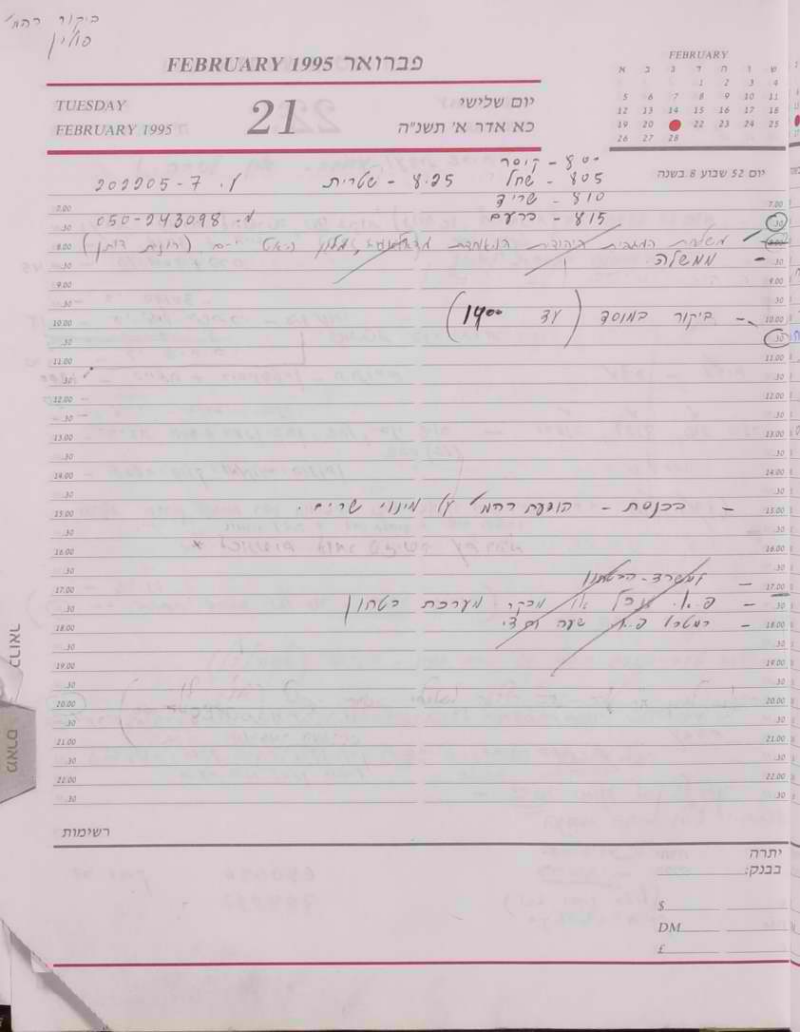 ביקור רהמ'
פולין
FEBRUARY 1995 פברואר
FEBRUARY
א ב ג ד ה ו ש
1 2 3 4
5 6 7 8 9 10 11
12 13 14 15 16 17 18
19 20 22 23 24 25
26 27 28
TUESDAY
FEBRUARY 1995
21
יום שלישי
כא אדר א' תשנ"ה
יום 52 שבוע 8 בשנה
800 - קיסר
805 - שחל
8.25 - שטרית
מ. 202205-7
810 - שריד
815 - ברעם
מ. 050-243098
7.00
.30
8.00
משלחת המגבית היהודית המאוחדת
.30
- ממשלה
9.00
.30
10.00
- ביקור במוסד (עד 1400)
.30
11.00
.30
12.00
.30
13.00
.30
14.00
.30
15.00
- בכנסת - הודעת רהמ' על מינוי שרים.
.30
16.00
.30
- למשרד-הבטחון
17.00
.30
- פ.א. עם מבקר מערכת בטחון
18.00
.30
19.00
.30
20.00
.30
21.00
.30
22.00
.30
רשימות
יתרה
בבנק:
$
DM
£